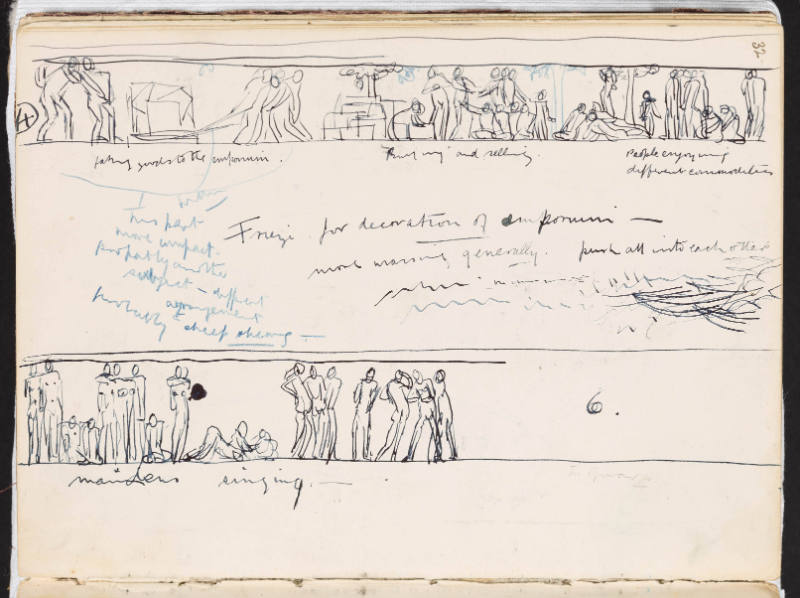 32
A
taking goods to the emporium.
Buying and selling.
People enjoying
different commodities
I
This part
more compact.
Probably another
subject - different
arrangement
Probably sheep shearing —
Frieze for decoration of emporium —
more massing generally. push all into each other
6.
maidens singing. —